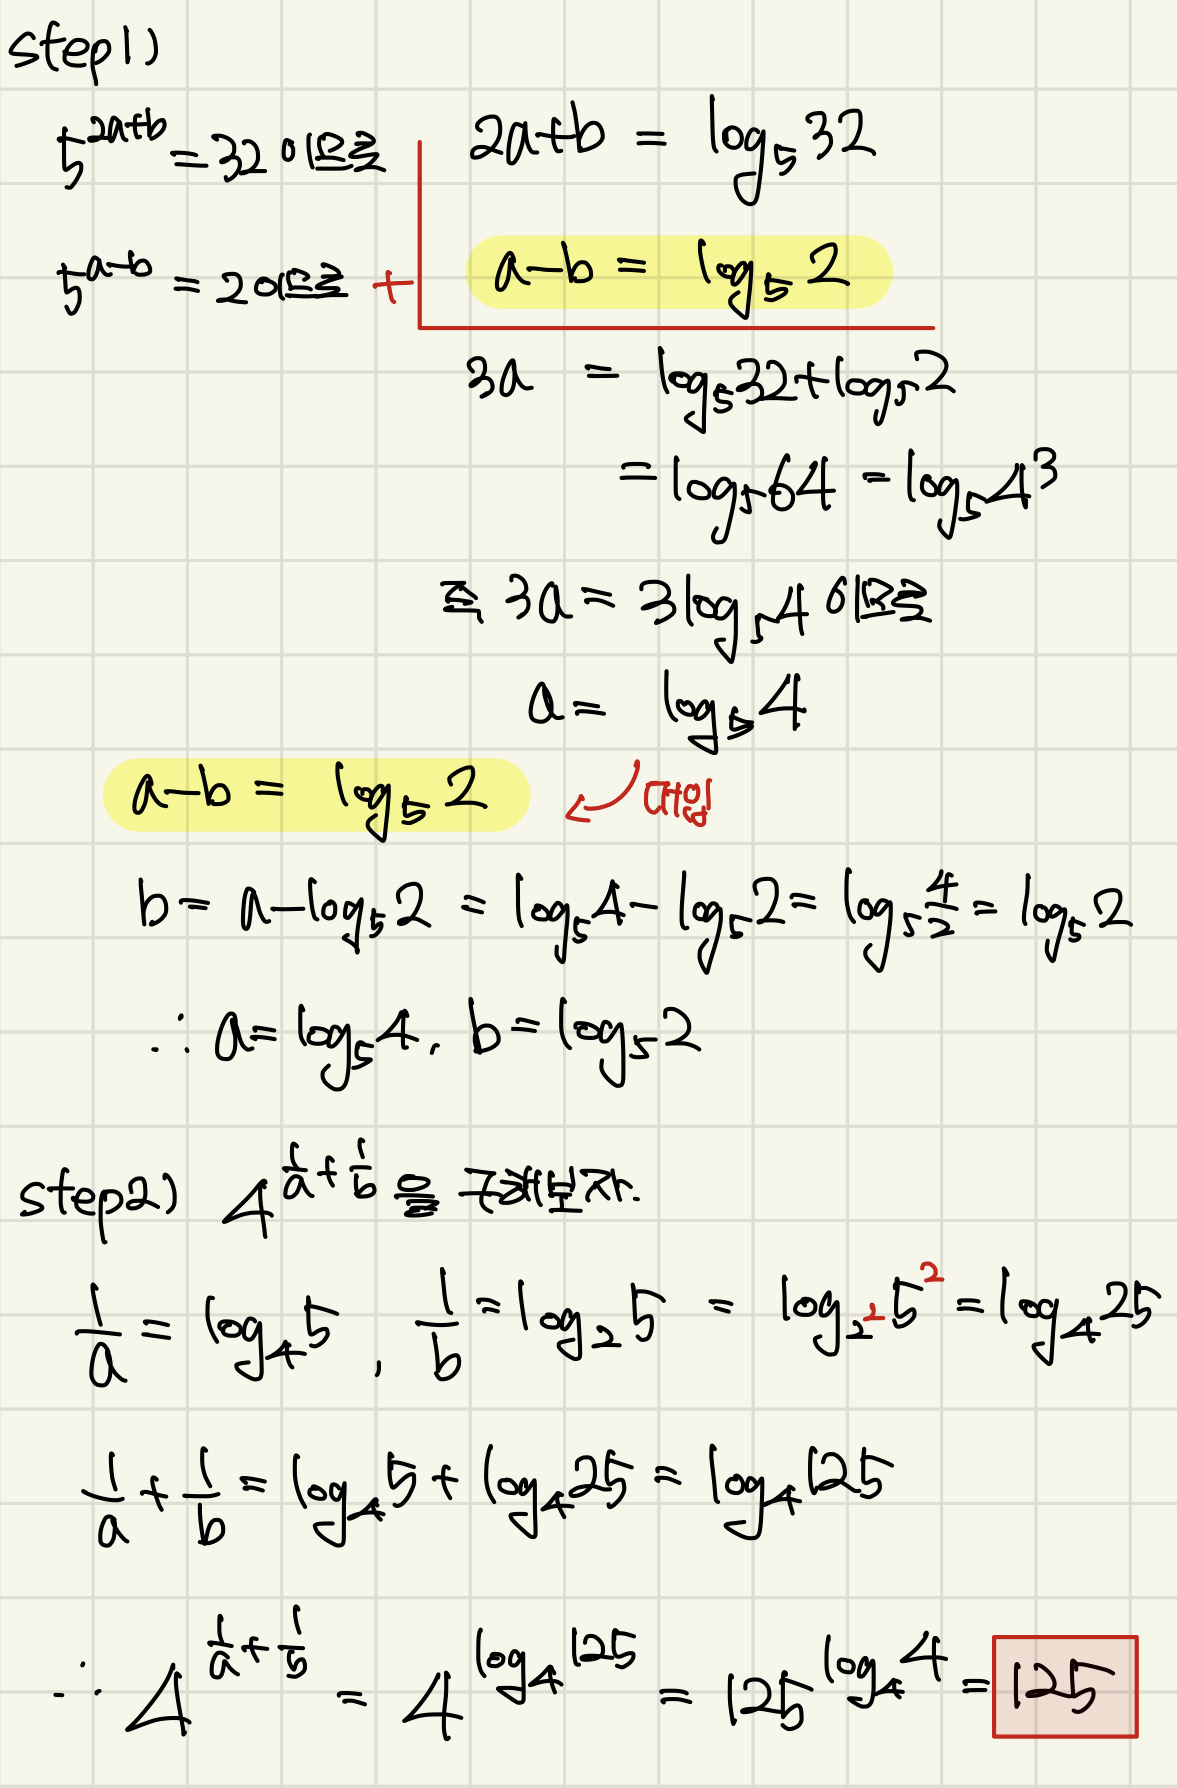 step1)
5^{2a+b} = 32 이므로 2a+b = log₅32
5^{a-b} = 2 이므로 + a-b = log₅2
3a = log₅32 + log₅2
= log₅64 = log₅4³
즉 3a = 3log₅4 이므로
a = log₅4
a-b = log₅2 대입
b = a-log₅2 = log₅4 - log₅2 = log₅4/2 = log₅2
∴ a = log₅4, b = log₅2
step2) 4^{1/a + 1/b} 을 구해보자.
1/a = log₄5, 1/b = log₂5 = log_{2²}5² = log₄25
1/a + 1/b = log₄5 + log₄25 = log₄125
∴ 4^{1/a + 1/5} = 4^{log₄125} = 125^{log₄4} = 125